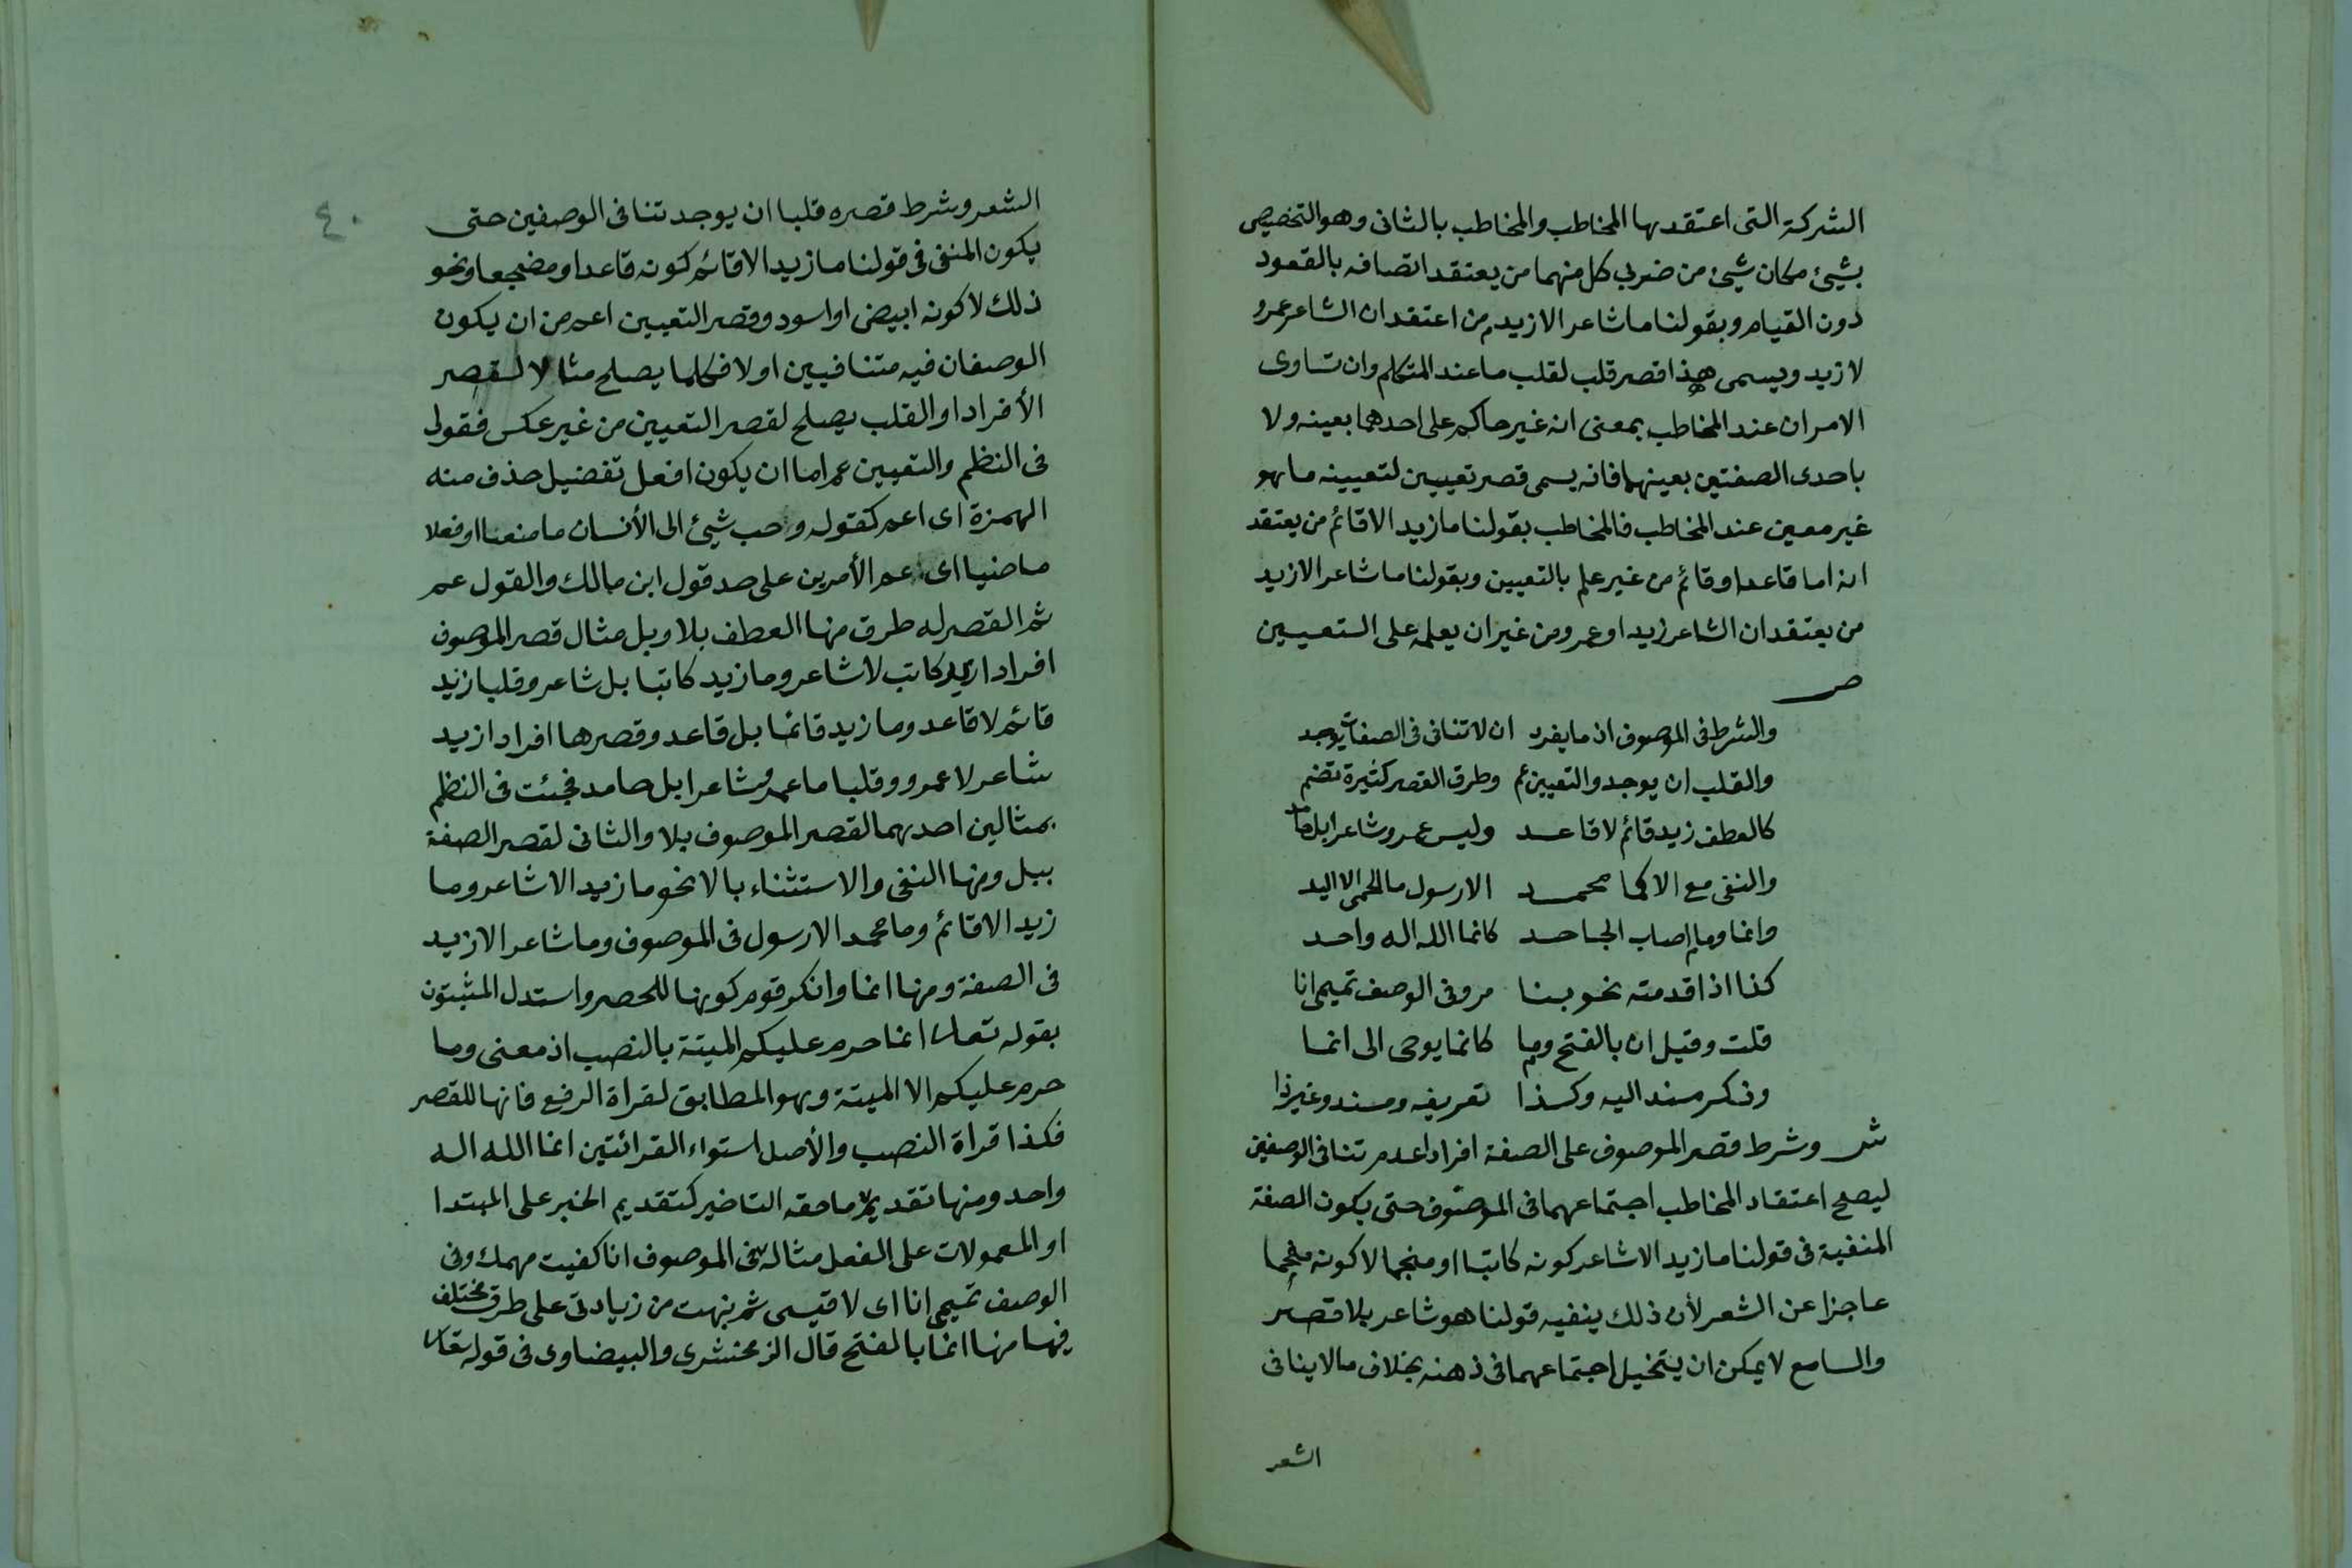 الشركة التى اعتقدها المخاطب والمخاطب بالثانى وهو التخصيص
بشيئ مكان شيئ من ضربى كل منهما من يعتقد اتصافه بالقعود
دون القيام وبقولنا ما شاعر الا زيد من اعتقد ان الشاعر عمرو
لا زيد ويسمى هذا قصر قلب لقلب ما عند المتكلم وان تساوى
الامران عند المخاطب بمعنى انه غير حاكم على احدهما بعينه ولا
باحدى الصفتين بعينهما فانه يسمى قصر تعيين لتعيينه ما هو
غير معين عند المخاطب فالمخاطب بقولنا ما زيد الا قائم من يعتقد
انه اما قاعد او قائم من غير علم بالتعيين وبقولنا ما شاعر الا زيد
من يعتقد ان الشاعر زيد او عمرو من غير ان يعلمه على التعيين
ص
والشرط فى الموصوف اذ ما يفرد ان لا تنافى فى الصفات يوجد
والقلب ان يوجد والتعيين عم وطرق القصر كثيرة تضم
كالعطف زيد قائم لا قاعد وليس عمرو شاعرا بل حامد
والنفى مع الا كما محمد الا رسول ما لحمى الا اليد
وانما وما اصاب الجاحد كانما الله اله واحد
كذا اذا قدمته نحو بنا مر وفى الوصف تميمى انا
قلت وقيل ان بالفتح وما كانما يوحى الى انما
وذكر مسند اليه وكذا تعريفه ومسند وغير ذا
ش وشرط قصر الموصوف على الصفة افرادا عدم تنافى الوصفين
ليصح اعتقاد المخاطب اجتماعهما فى الموصوف حتى يكون الصفة
المنفية فى قولنا ما زيد الا شاعر كونه كاتبا او منجما لا كونه مفحما
عاجزا عن الشعر لأن ذلك ينفيه قولنا هو شاعر بلا قصر
والسامع لا يمكن ان يتخيل اجتماعهما فى ذهنه بخلاف ما لا ينافى
الشعر
٤٠
الشعر وشرط قصره قلبا ان يوجد تنافى الوصفين حتى
يكون المنفى فى قولنا ما زيد الا قائم كونه قاعدا او مضجعا ونحو
ذلك لا كونه ابيض او اسود وقصر التعيين اعم من ان يكون
الوصفان فيه متنافيين اولا فكلما يصلح مثالا لقصر
الأفراد او القلب يصلح لقصر التعيين من غير عكس فقولى
فى النظم والتعيين عم اما ان يكون افعل تفضيل حذف منه
الهمزة اى اعم كقوله وحب شيئ الى الأنسان ما منعا او فعلا
ماضيا اى عم الأمرين على حد قول ابن مالك والقول عم
ثم القصر له طرق منها العطف بلا وبل مثال قصر الموصوف
افرادا زيد كاتب لا شاعر وما زيد كاتبا بل شاعر وقلبا زيد
قائم لا قاعد وما زيد قائما بل قاعد وقصرها افرادا زيد
شاعر لا عمرو وقلبا ما عمرو شاعرا بل حامد فجئت فى النظم
بمثالين احدهما لقصر الموصوف بلا والثانى لقصر الصفة
ببل ومنها النفى والاستثناء بالا نحو ما زيد الا شاعر وما
زيد الا قائم وما محمد الا رسول فى الموصوف وما شاعر الا زيد
فى الصفة ومنها انما وانكر قوم كونها للحصر واستدل المثبتون
بقوله تعالى انما حرم عليكم الميتة بالنصب اذ معنى وما
حرم عليكم الا الميتة وهو المطابق لقراة الرفع فانها للقصر
فكذا قراة النصب والأصل استواء القرائتين انما الله اله
واحد ومنها تقديم ما حقه التاخير كتقديم الخبر على المبتدا
او المعمولات على الفعل مثاله فى الموصوف انا كفيت مهمك وفى
الوصف تميمى انا اى لا قيسى ثم نبهت من زيادتى على طرق مختلف
فيها منها انما بالفتح قال الزمخشرى والبيضاوى فى قوله تعالى